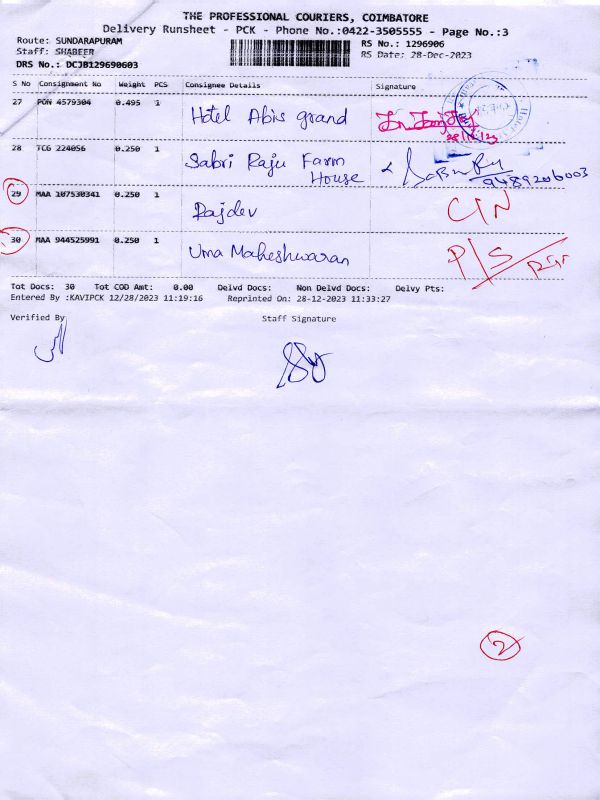 THE PROFESSIONAL COURIERS, COIMBATORE
Delivery Runsheet - PCK - Phone No.:0422-3505555 - Page No.:3
Route: SUNDARAPURAM
Staff: SHABEER
DRS No.: DCJB129690603
RS No.: 1296906
RS Date: 28-Dec-2023
S No Consignment No Weight PCS Consignee Details Signature
27 PON 4579304 0.495 1 Hotel Abis grand
28/12/23
28 TCG 224056 0.250 1 Sabri Raju Farm House
9489206003
29 MAA 107530341 0.250 1 Rajdev C/N
30 MAA 944525991 0.250 1 Uma Maheshwaran P/S
Tot Docs: 30 Tot COD Amt: 0.00 Delvd Docs: Non Delvd Docs: Delvy Pts:
Entered By :KAVIPCK 12/28/2023 11:19:16 Reprinted On: 28-12-2023 11:33:27
Verified By Staff Signature
2